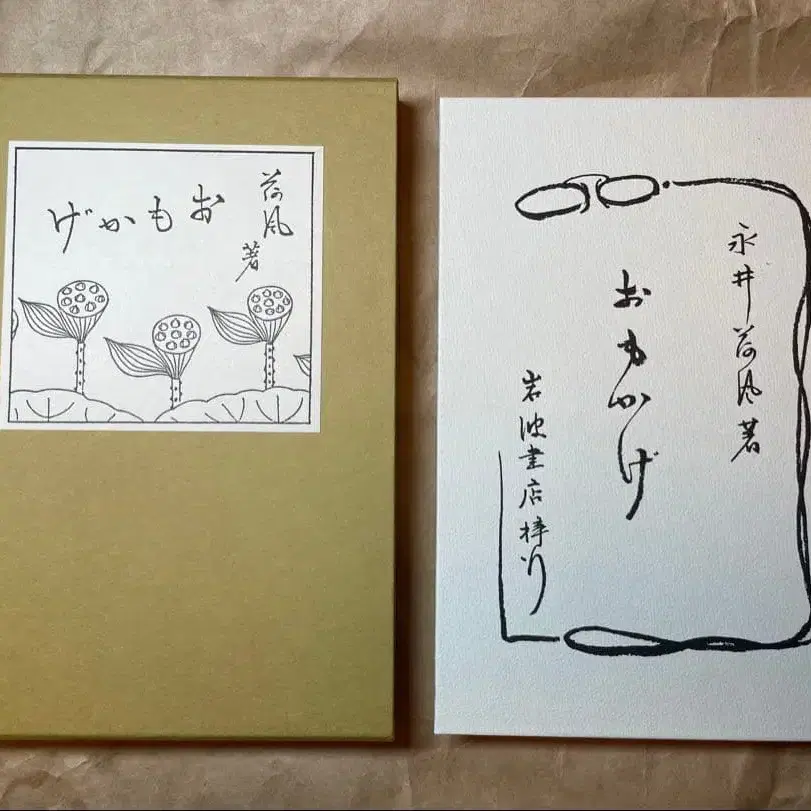 荷風
著
おもかげ
永井荷風著
おもかげ
岩波書店梓行